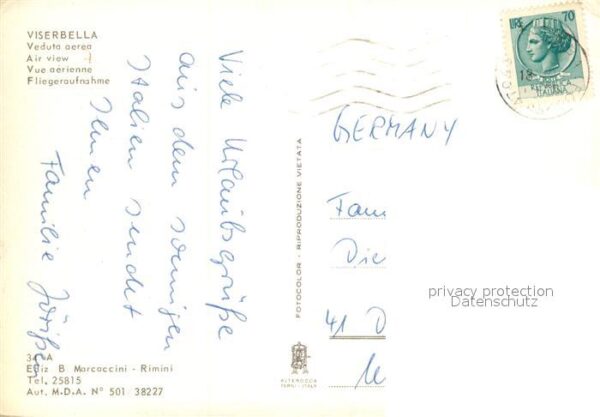 VISERBELLA
Veduta aerea
Air view
Vue aérienne
Fliegeraufnahme
Viele Urlaubsgrüße
aus dem sonnigen
Italien sendet
Ihnen
Familie
34 A
Ediz B Marcaccini - Rimini
Tel. 25815
Aut. M.D.A. N° 501 38227
FOTOCOLOR - RIPRODUZIONE VIETATA
ALTEROCCA
TERNI - ITALIA
LIRE 70
GERMANY
Fam
Die
41 D
privacy protection
Datenschutz